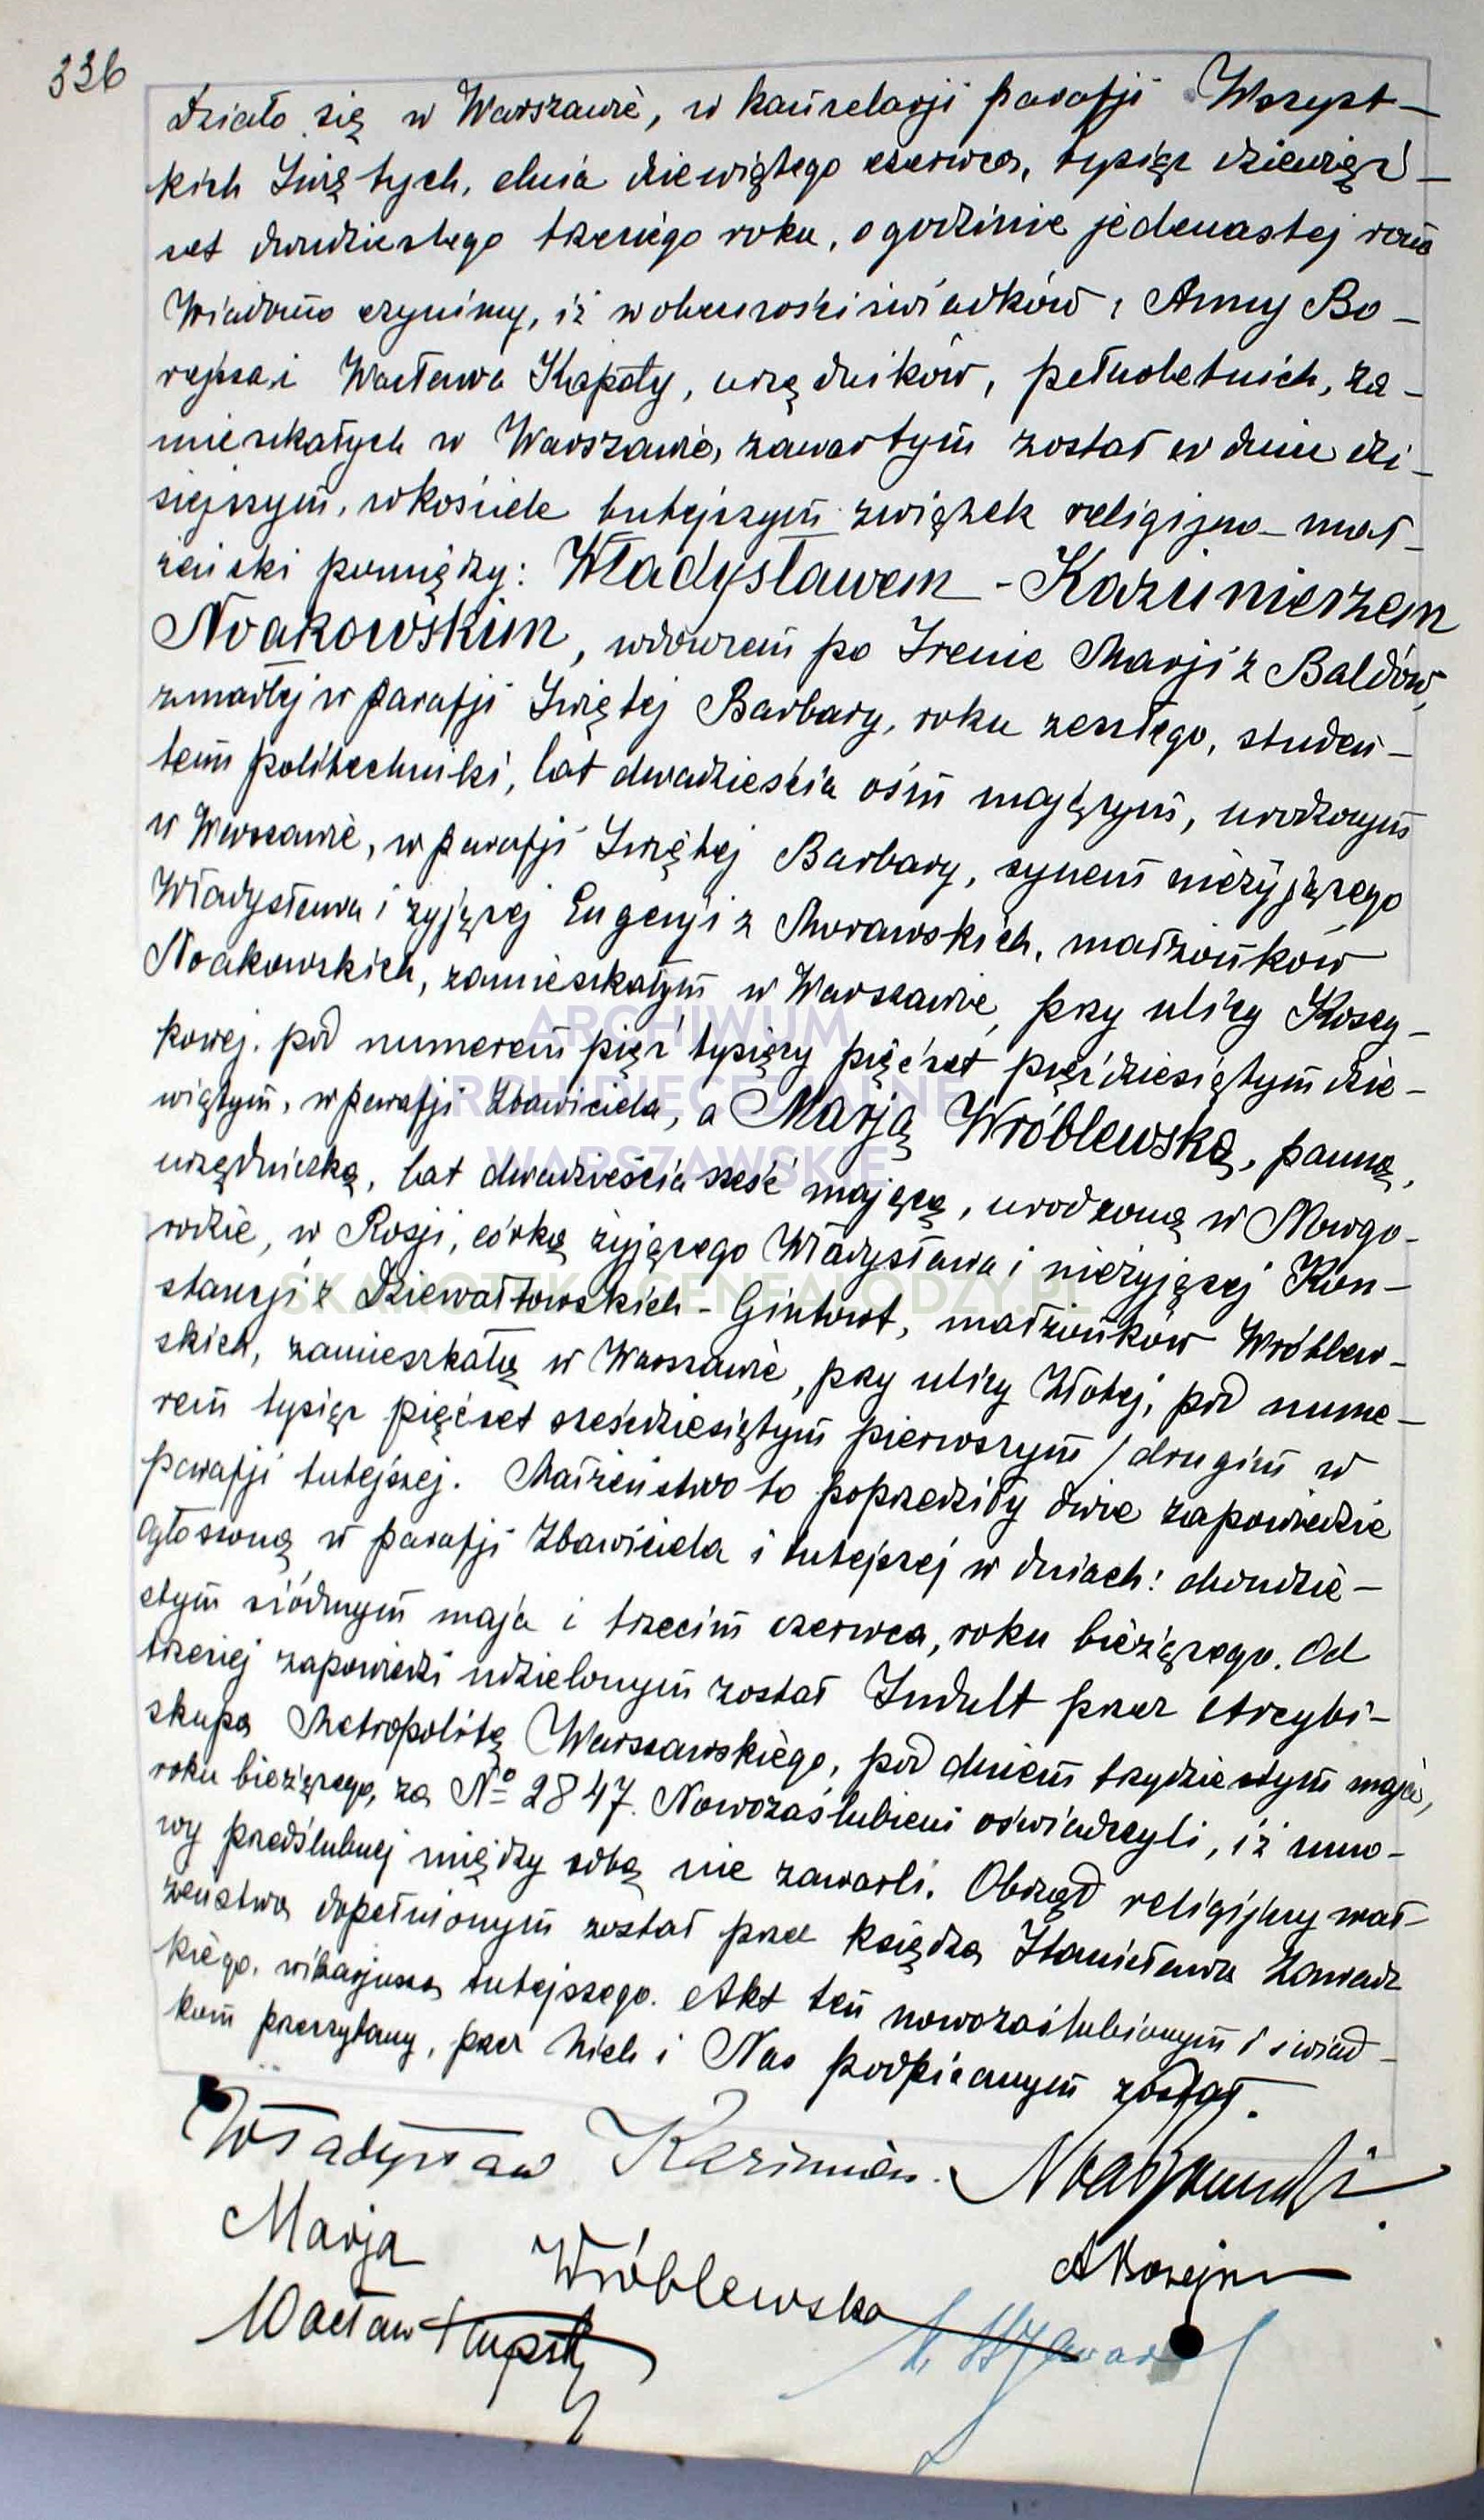 336
Działo się w Warszawie, w kancelarji parafji Wszyst-
kich Świętych, dnia dziewiątego czerwca, tysiąc dziewięć-
set dwudziestego trzeciego roku, o godzinie jedenastej rano
Wiadomo czynimy, iż w obecności świadków: Anny Bo-
rejsza i Wacława Kapsty, urzędników, pełnoletnich, za-
mieszkałych w Warszawie, zawartym został w dniu dzi-
siejszym, w kościele tutejszym związek religijno-mał-
żeński pomiędzy: Władysławem - Kazimierzem
Noakowskim, wdowcem po Irenie Marji z Baldów,
zmarłej w parafji Świętej Barbary, roku zeszłego, studen-
tem politechniki, lat dwadzieścia ośm mającym, urodzonym
w Warszawie, w parafji Świętej Barbary, synem nieżyjącego
Władysława i żyjącej Eugenji z Morawskich, małżonków
Noakowskich, zamieszkałym w Warszawie, przy ulicy Koszy-
kowej, pod numerem pięć tysięcy pięćset pięćdziesiątym dzie-
wiątym, w parafji Zbawiciela, a Marją Wróblewską, panną,
urzędniczką, lat dwadzieścia sześć mającą, urodzoną w Nowgo-
rodzie, w Rosji, córką żyjącego Władysława i nieżyjącej Kon-
stancji z Dziewałtowskich-Gintowt, małżonków Wróblew-
skich, zamieszkałą w Warszawie, przy ulicy Złotej, pod nume-
rem tysiąc pięćset sześćdziesiątym pierwszym / drugim w
parafji tutejszej. Małżeństwo to poprzedziły dwie zapowiedzie
ogłoszoną w parafji Zbawiciela i tutejszej w dniach: dwudzie-
stym siódmym maja i trzecim czerwca, roku bieżącego. Od
trzeciej zapowiedzi udzielonym został Indult przez Arcybi-
skupa Metropolitę Warszawskiego, pod dniem trzydziestym maja,
roku bieżącego, za № 2847. Nowozaślubieni oświadczyli, iż umo-
wy przedślubnej między sobą nie zawarli. Obrzęd religijny mał-
żeństwa dopełnionym został przez księdza Stanisława Zawadz
kiego, wikarjusza tutejszego. Akt ten nowozaślubionym i świad-
kom przeczytany, przez Nich i Nas podpisanym został.
Władysław Kazimierz Noakowski
Marja Wróblewska
Wacław
ARCHIWUM
ARCHIDIECEZJALNE
WARSZAWSKIE
SKANOTEKA.GENEALODZY.PL